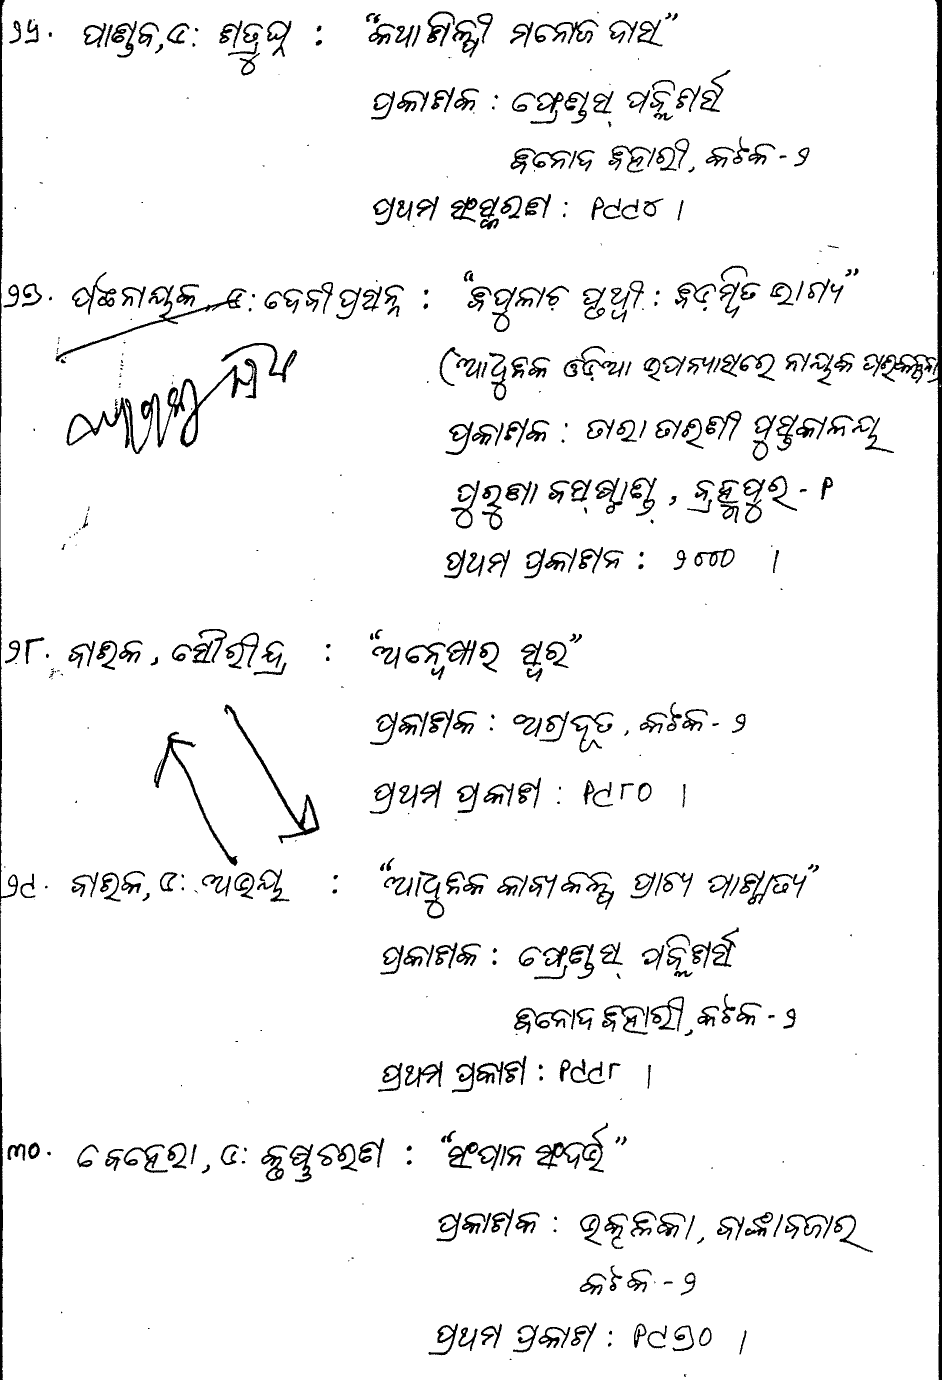 ୨୬. ପାଣ୍ଡବ, ଡ: ଶତ୍ରୁଘ୍ନ : "କଥାଶିଳ୍ପୀ ମନୋଜ ଦାସ"
ପ୍ରକାଶକ : ଫ୍ରେଣ୍ଡସ୍ ପବ୍ଲିଶର୍ସ
ବିନୋଦ ବିହାରୀ, କଟକ - ୨
ପ୍ରଥମ ସଂସ୍କରଣ : ୧୯୯୪ ।
୨୭. ପଟ୍ଟନାୟକ, ଡ: ଦେବୀପ୍ରସନ୍ନ : "ବିପୁଳାଚ ପୃଥ୍ୱୀ : ବିଡ଼ମ୍ବିତ ଭାଗ୍ୟ"
(ଆଧୁନିକ ଓଡ଼ିଆ ଉପନ୍ୟାସରେ ନାୟକ ପରିକଳ୍ପନା)
ପ୍ରକାଶକ : ତାରା ତାରିଣୀ ପୁସ୍ତକାଳୟ
ପୁରୁଣା ବସଷ୍ଟାଣ୍ଡ, ବ୍ରହ୍ମପୁର - ୧
ପ୍ରଥମ ପ୍ରକାଶନ : ୨୦୦୦ ।
୨୮. ବାରିକ, ସୌରୀନ୍ଦ୍ର : "ଅନ୍ୱେଷାର ସ୍ୱର"
ପ୍ରକାଶକ : ଅଗ୍ରଦୂତ, କଟକ - ୨
ପ୍ରଥମ ପ୍ରକାଶ : ୧୯୮୦ ।
୨୯. ବାରିକ, ଡ: ଅଭୟ : "ଆଧୁନିକ କାବ୍ୟକଳ୍ପ ପ୍ରାଚ୍ୟ ପାଶ୍ଚାତ୍ୟ"
ପ୍ରକାଶକ : ଫ୍ରେଣ୍ଡସ୍ ପବ୍ଲିଶର୍ସ
ବିନୋଦ ବିହାରୀ, କଟକ - ୨
ପ୍ରଥମ ପ୍ରକାଶ : ୧୯୯୮ ।
୩୦. ବେହେରା, ଡ: କୃଷ୍ଣଚରଣ : "ସଂଧାନ ସଂଦର୍ଭ"
ପ୍ରକାଶକ : ଉତ୍କଳିକା, ବାଙ୍କାବଜାର
କଟକ - ୨
ପ୍ରଥମ ପ୍ରକାଶ : ୧୯୭୦ ।